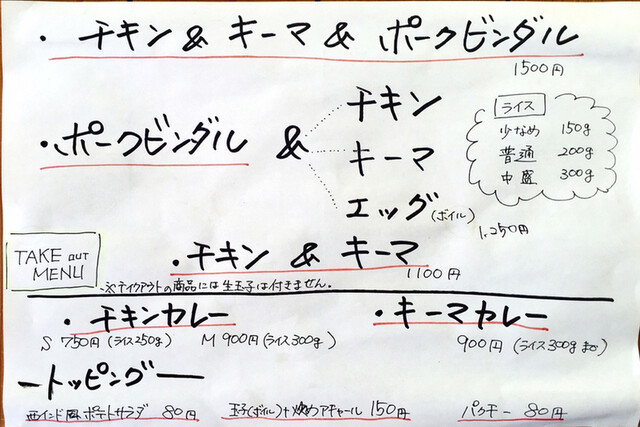 ・チキン & キーマ & ポークビンダル
1500円
・ポークビンダル & チキン
キーマ
エッグ(ボイル)
1,250円
ライス
少なめ 150g
普通 200g
中盛 300g
・チキン & キーマ
1100円
TAKE OUT
MENU
※テイクアウトの商品には生玉子は付きません。
・チキンカレー
S 750円 (ライス250g) M 900円 (ライス300g)
・キーマカレー
900円 (ライス300gまで)
ートッピングー
西インド風ポテトサラダ 80円
玉子(ボイル)+ アチャール 150円
パクチー 80円